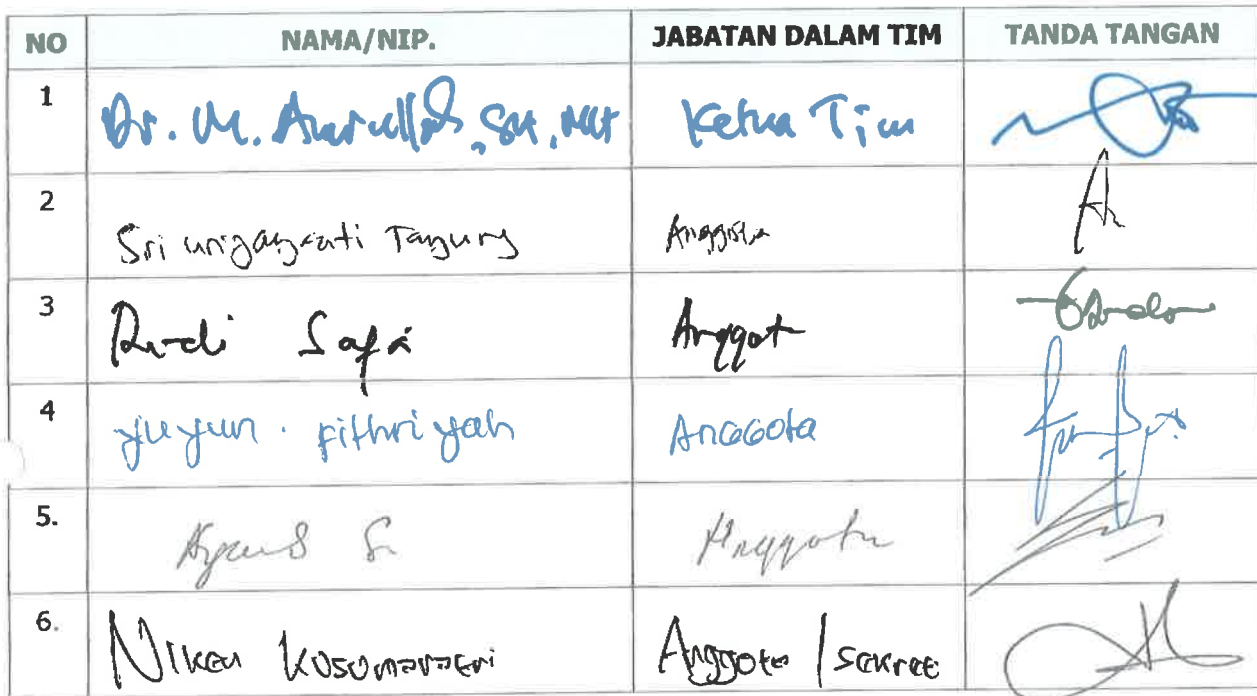 NO NAMA/NIP. JABATAN DALAM TIM TANDA TANGAN
1 Dr. M. Amrullah, SH, MH Ketua Tim
2 Sri Tanjung Anggota
3 Rudi Anggota
4 yuyun. Fithriyah Anggota
5. Agus S Anggota
6. Niken Kusumawati Anggota / sekret